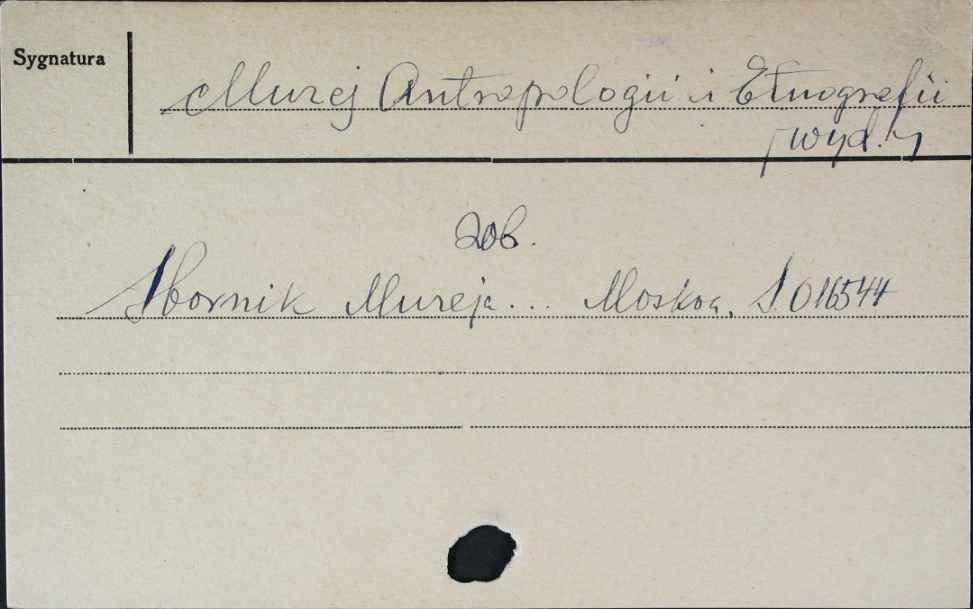 Sygnatura
Muzej Antropologii i Etnografii
[wyd.]
Zob.
Sbornik Muzeja... Moskva. S. 016544